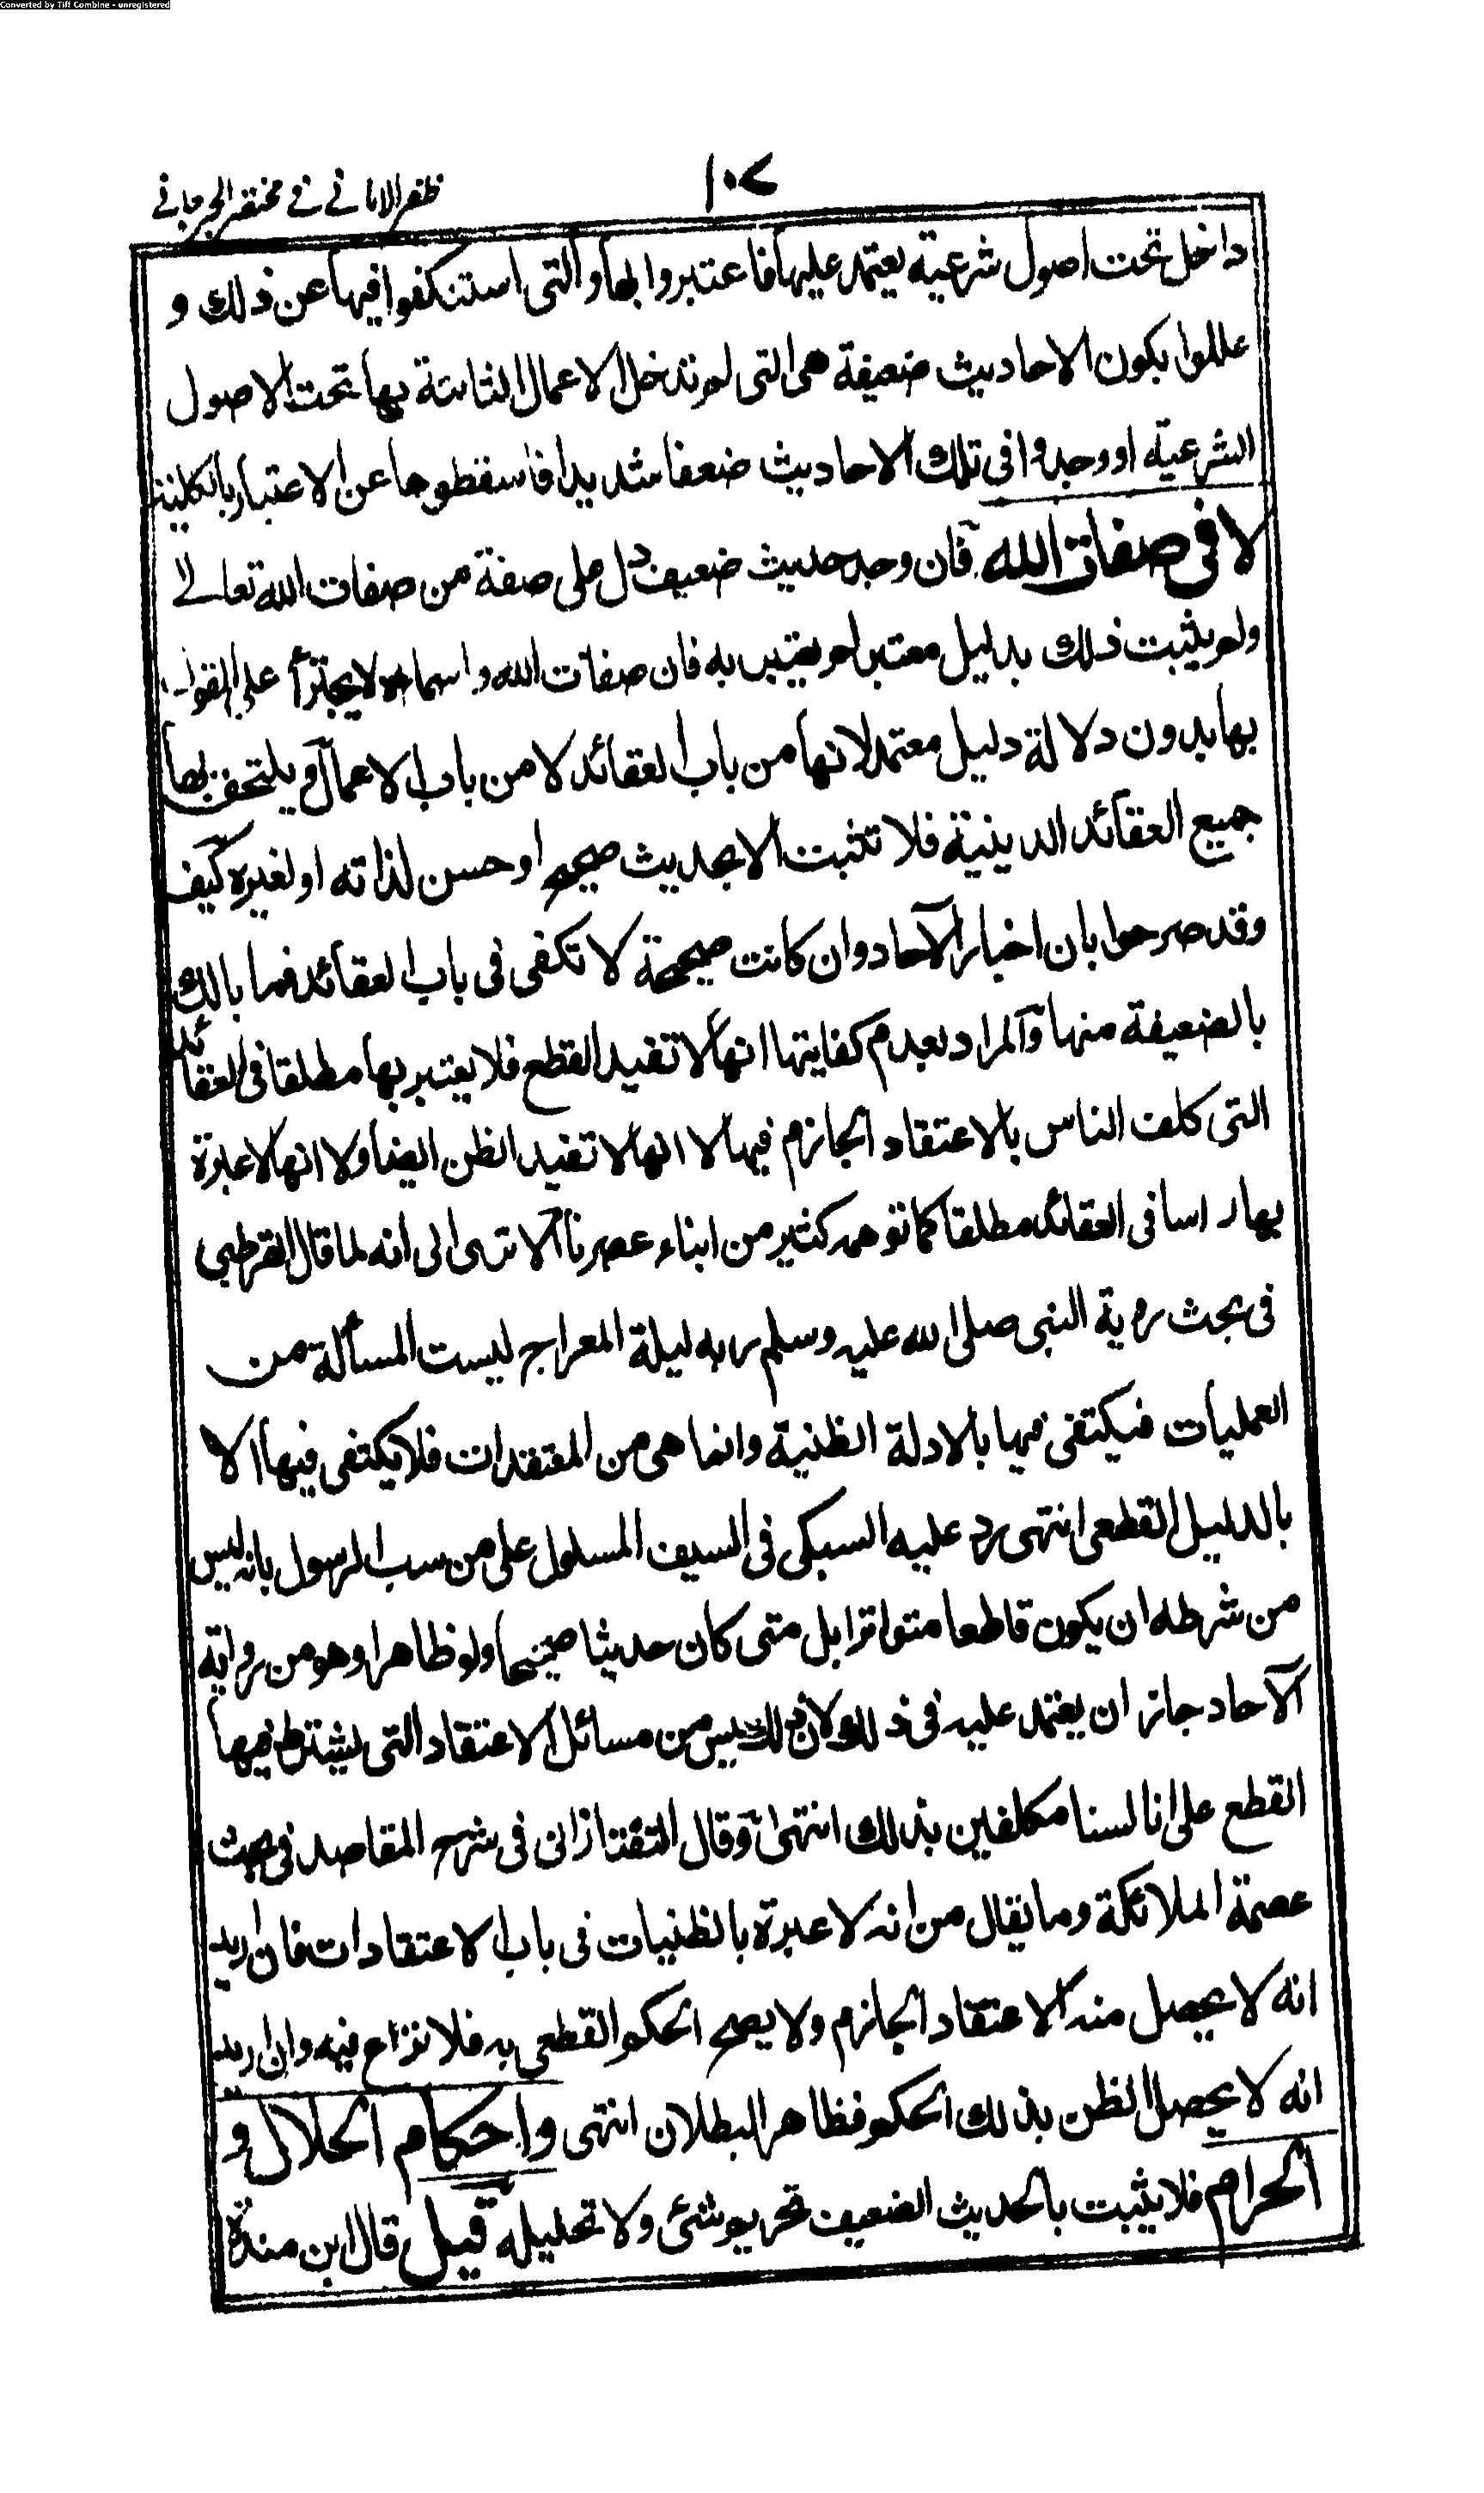 Converted by Tiff Combine - unregistered
١٠٧
ظفر الامانے فے مختصر الجرجانے
داخل تحت اصول شرعية يعتمد عليها فاعتبروا بها والتى استنكفوا فيها عن ذلك و
عللوا بكون الاحاديث ضعيفة هى التى لم تدخل الاعمال الثابتة بها تحت الاصول
الشرعية او وجدوا فى تلك الاحاديث ضعفا شديدا فاسقطوها عن الاعتبار بالكلية
لا فى صفات الله فان وجد حديث ضعيف دل على صفة من صفات الله تعالے
ولم يثبت ذلك بدليل معتبر لم يعتبر به فان صفات الله واسماءه لا يجترأ على القول
بها بدون دلالة دليل معتمد لانها من باب العقائد لا من باب الاعمال ويلتحق بها
جميع العقائد الدينية فلا تثبت الا بحديث صحيح او حسن لذاته او لغيره كيف
وقد صرحوا بان اخبار الآحاد وان كانت صحيحة لا تكفى فى باب العقائد فما بالك
بالضعيفة منها والمراد بعدم كفايتها انها لا تفيد القطع فلا يعتبر بها مطلقا فى العقائد
التى كلف الناس بالاعتقاد الجازم فيها لا انها لا تفيد الظن ايضا ولا انها لا عبرة
بها راسا فى العقائد مطلقا كما توهم كثير من ابناء عصرنا الا ترى الى انه لما قال القرطبى
فى بحث روية النبى صلى الله عليه وسلم ربه ليلة المعراج ليست المسألة من
العمليات فيكتفى فيها بالادلة الظنية وانما هى من المعتقدات فلا يكتفى فيها الا
بالدليل القطعى انتهى رد عليه السبكى فى السيف المسلول على من سب الرسول بانه ليس
من شرطه ان يكون قاطعا متواترا بل متى كان حديثا صحيحا ولو ظاهرا وهو من رواية
الآحاد جاز ان يعتمد عليه فى ذلك لان ذلك ليس من مسائل الاعتقاد التى يشترط فيها
القطع على انا لسنا مكلفين بذلك انتهى وقال التفتازانى فى شرح المقاصد فى بحث
عصمة الملائكة وما يقال من انه لا عبرة بالظنيات فى باب الاعتقادات فان اريد
انه لا يحصل منه الاعتقاد الجازم ولا يصح الحكم القطعى به فلا نزاع فيه وان اريد
انه لا يحصل الظن بذلك الحكم فظاهر البطلان انتهى واحكام الحلال و
الحرام فلا يثبت بالحديث الضعيف تحريم شئ ولا تحليله قيل قال ابن مندة